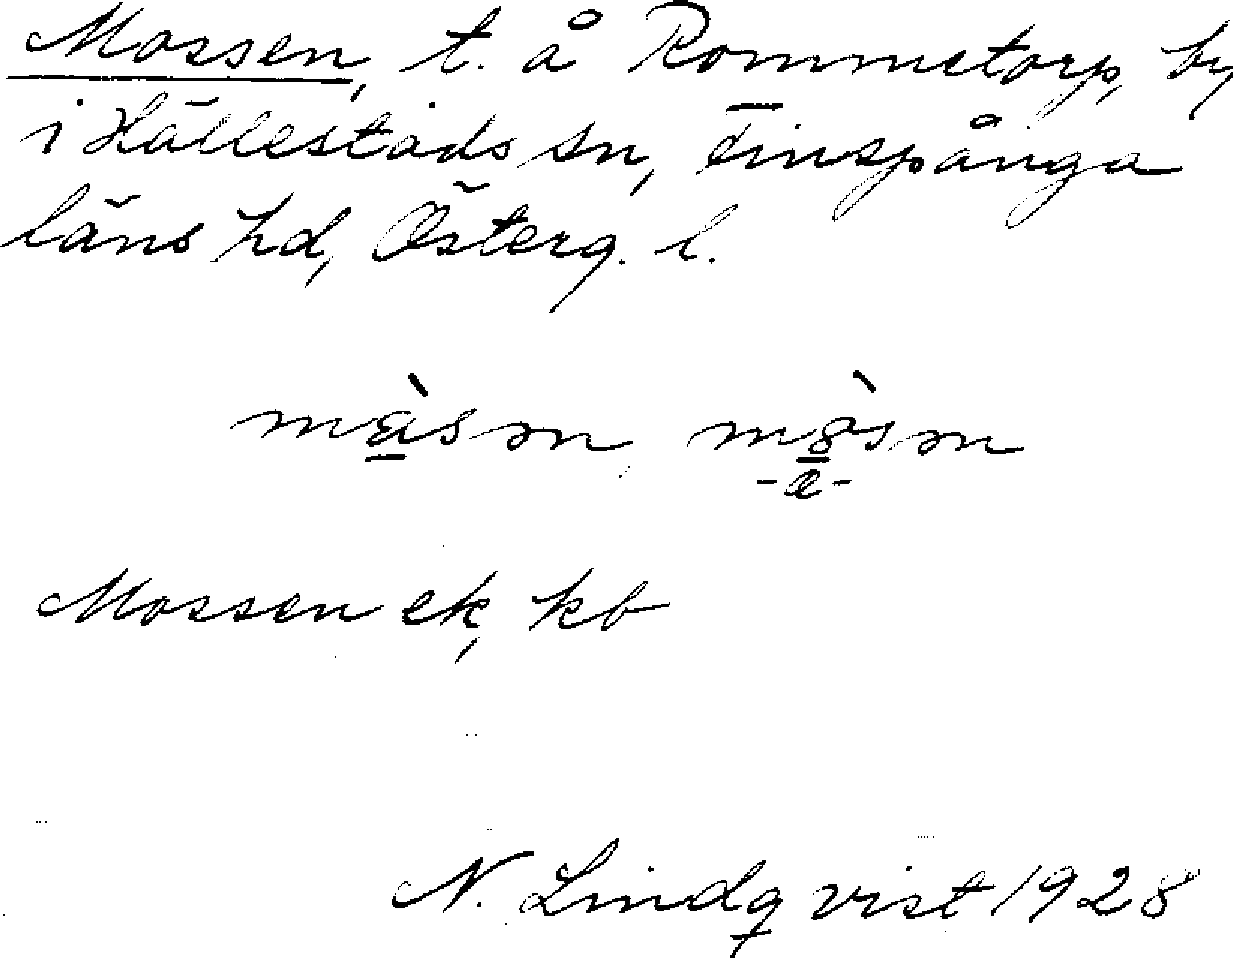 Mossen, t. å Rommetorp, by
i Hällestads sn, Finspånga
läns hd, Österg. l.
måsən mòsən
-ə-
Mossen ek, kb
N. Lindqvist 1928